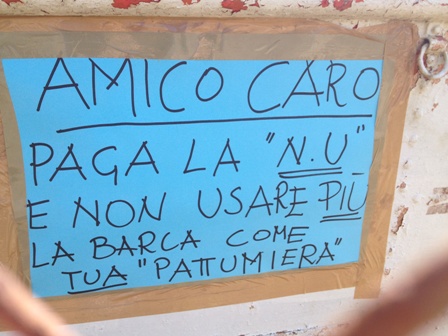 AMICO CARO
PAGA LA "N.U"
E NON USARE PIÙ
LA BARCA COME
TUA "PATTUMIERA"